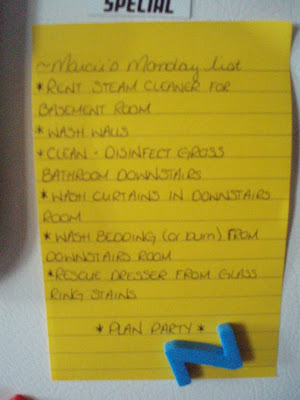 SPECIAL
~Marcie's Monday list
*RENT STEAM CLEANER FOR
BASEMENT ROOM
*WASH WALLS
*CLEAN - DISINFECT GROSS
BATHROOM DOWNSTAIRS
*WASH CURTAINS IN DOWNSTAIRS
ROOM
*WASH BEDDING (or burn) FROM
DOWNSTAIRS ROOM
*RESCUE DRESSER FROM GLASS
RING STAINS
*PLAN PARTY*